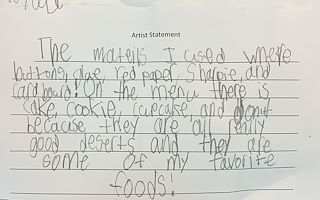 Artist Statement
The materils I used where
buttons, glue, red paper, Sharpie, and
cardboard! On the menu there is
cake, cookie, cupcake, and donut
because they are all really
good deserts and they are
some of my favorite
foods!